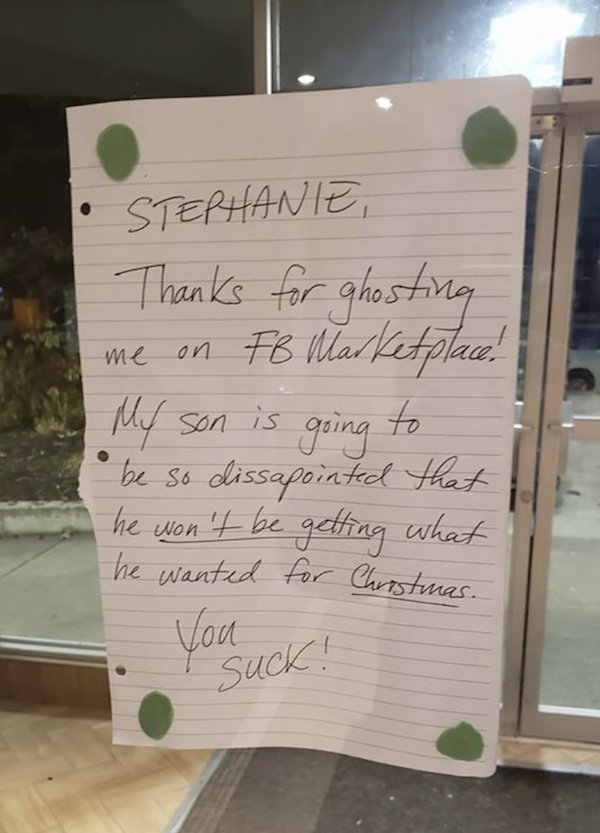 STEPHANIE,
Thanks for ghosting
me on FB Marketplace!
My son is going to
be so dissapointed that
he won't be getting what
he wanted for Christmas.
You
suck!